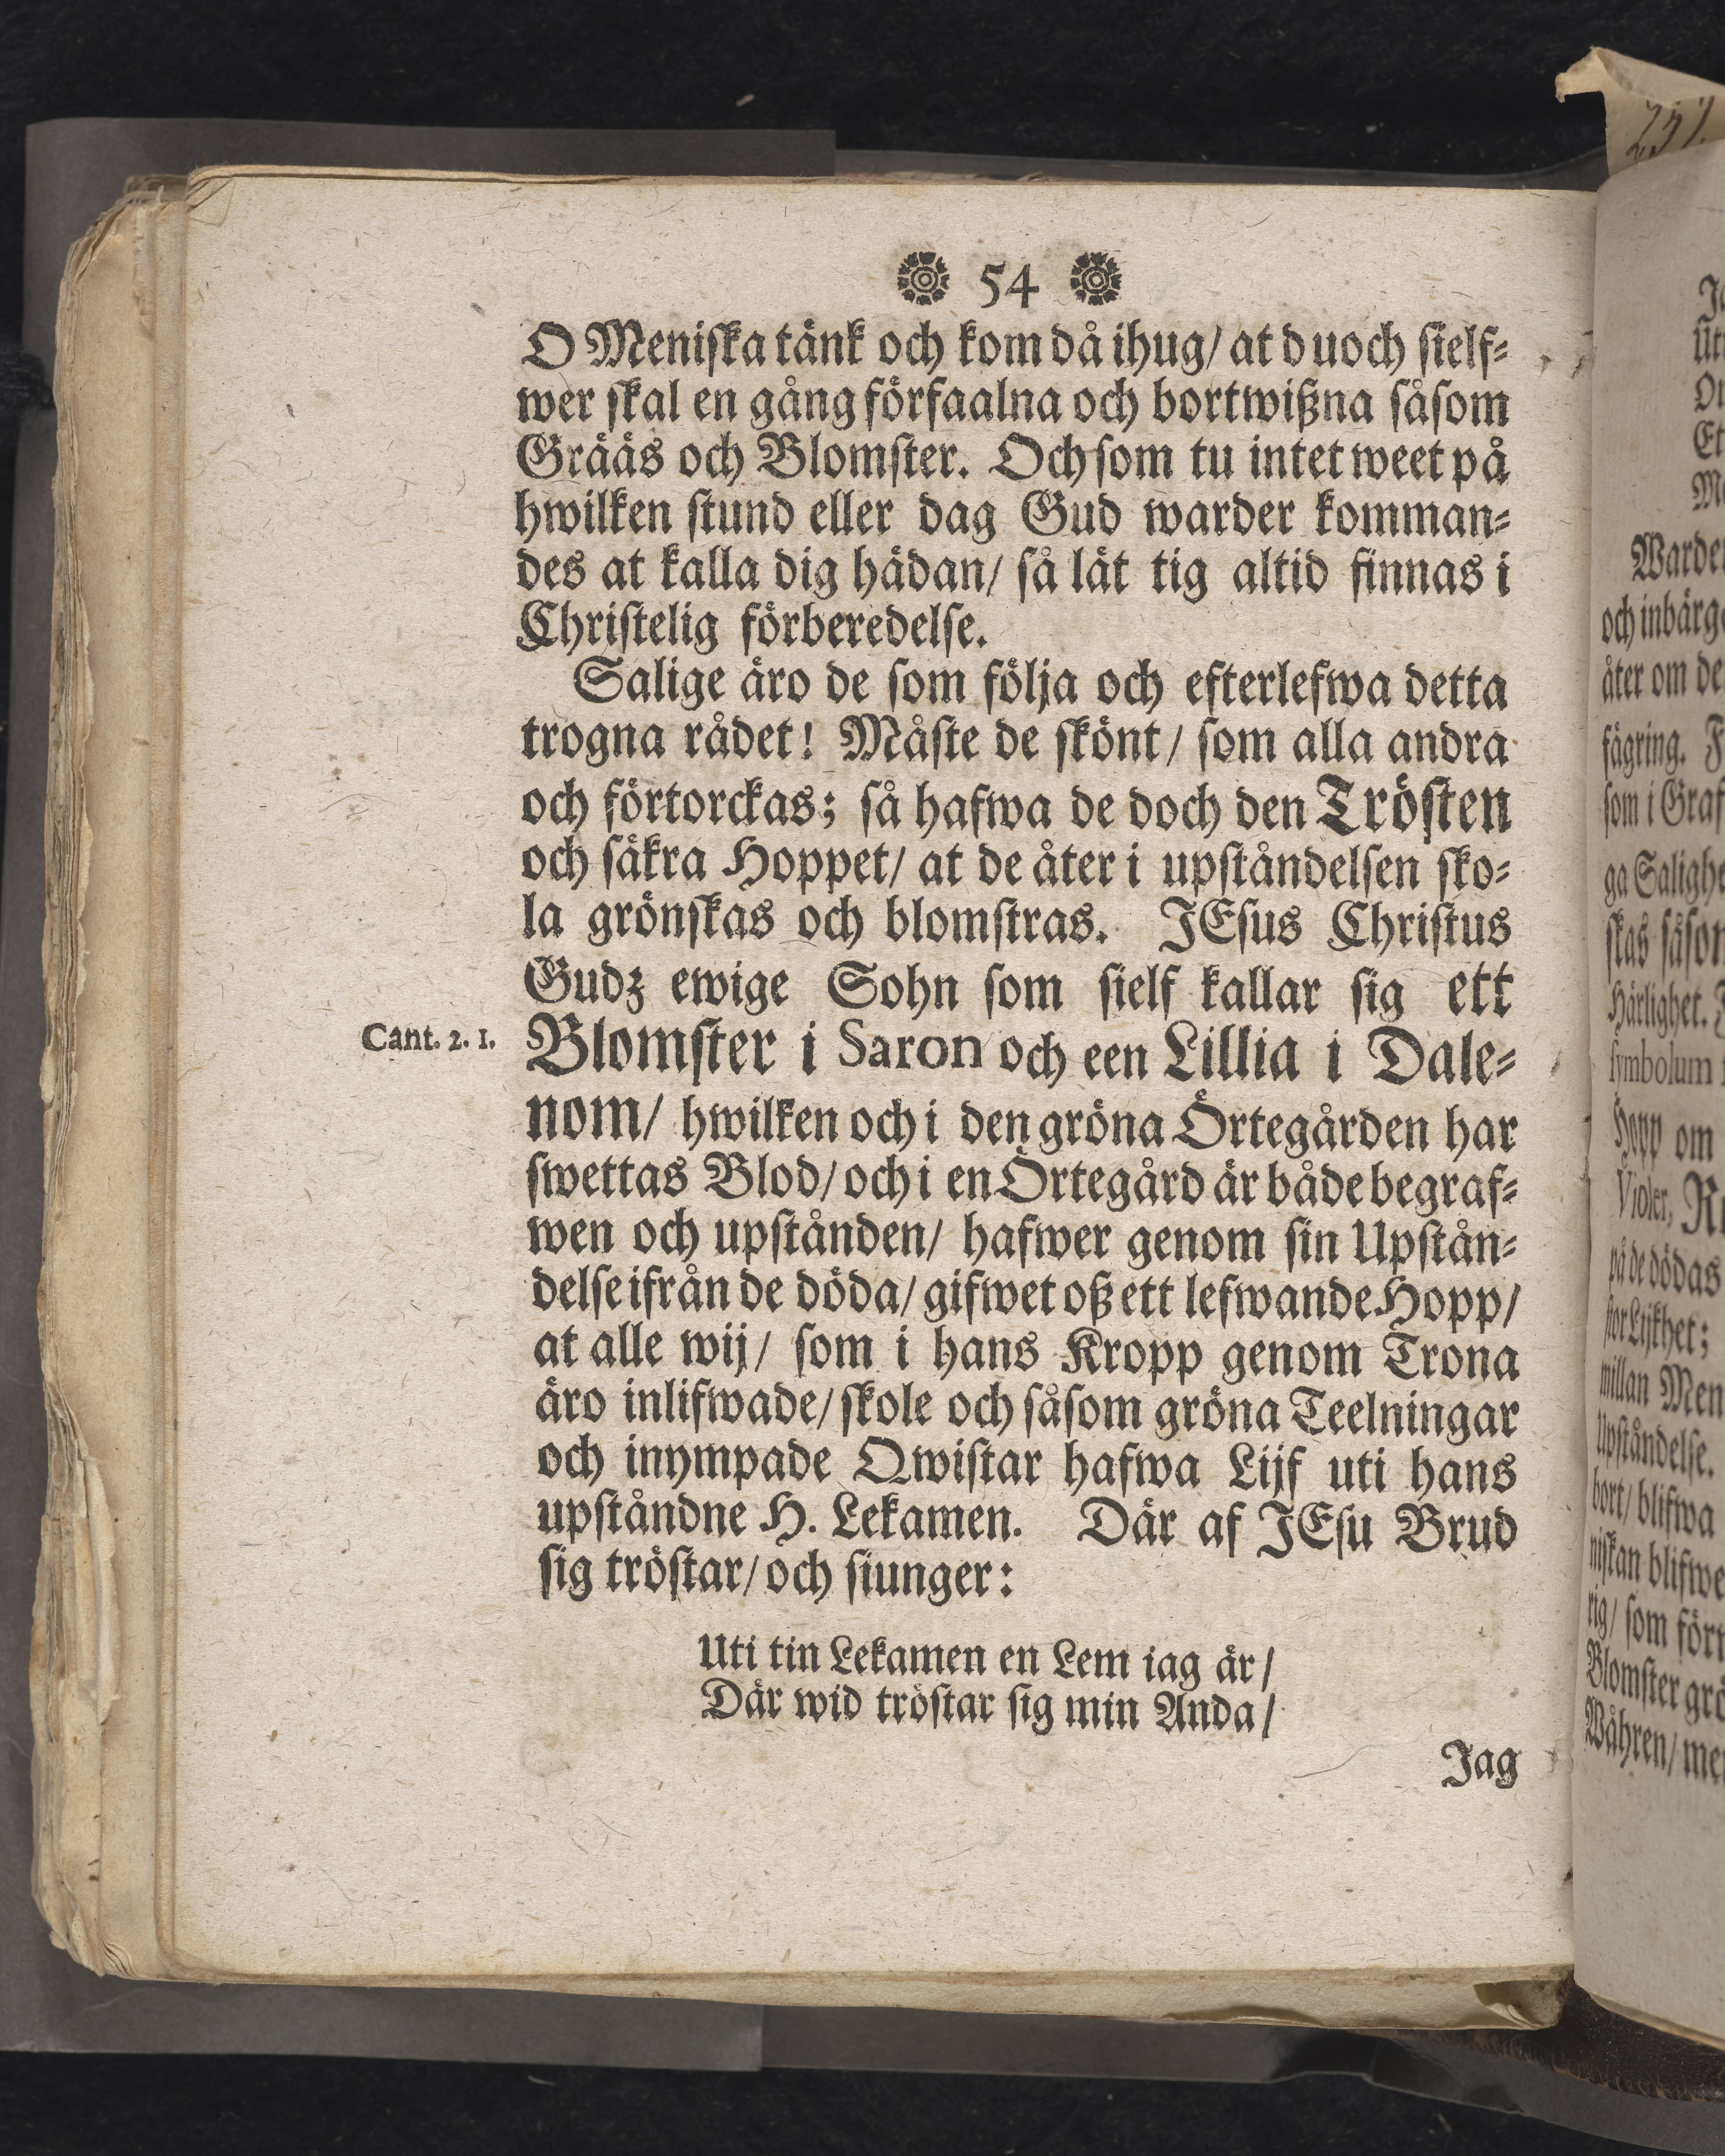 54
O Meniska tänk och kom då ihug/ at du och sielf-
wer skal en gång förfaalna och bortwißna såsom
Grääs och Blomster. Och som tu intet weet på
hwilken stund eller dag Gud warder komman-
des at kalla dig hädan/ så lät tig altid finnas i
Christelig förberedelse.
Salige äro de som följa och efterlefwa detta
trogna rådet! Måste de skönt/ som alla andra
och förtorckas; så hafwa de doch den Trösten
och säkra Hoppet/ at de åter i upståndelsen sko-
la grönskas och blomstras. JEsus Christus
Gudz ewige Sohn som sielf kallar sig ett
Cant. 2. 1.
Blomster i Saron och een Lillia i Dale-
nom/ hwilken och i den gröna Örtegården har
swettas Blod/ och i en Örtegård är både begraf-
wen och upstånden/ hafwer genom sin Upstån-
delse ifrån de döda/ gifwet oß ett lefwande Hopp/
at alle wij/ som i hans Kropp genom Trona
äro inlifwade/ skole och såsom gröna Teelningar
och inympade Qwistar hafwa Lijf uti hans
upståndne H. Lekamen. Där af JEsu Brud
sig tröstar/ och siunger:
Uti tin Lekamen en Lem iag är/
Där wid tröstar sig min Anda/
Jag
Warde
och inbärg
åter om de
fägring. F
som i Graf
ga Saligh
skas såsom
Härlighet.
symbolum
Hopp om
Violer, R
på de dödas
stor Lijkhet;
millan Men
Upståndelse.
bort/ blifwa
niskan blifwe
rig/ som för
Blomster grö
Wåhren/ me